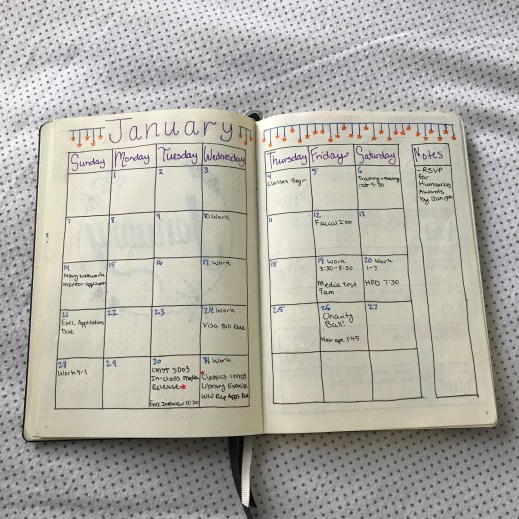 January
Sunday Monday Tuesday Wednesday
1 2 3
7 8 9 10 Work
14 15 16 17 Work
Mentor Application
21 22 23 24 Work
Exec. Application
Due
Visa Bill Due
28 29 30 31 Work
Work 9-1
CMST 3D03
In-class Media
Release
Exec Interview 12:30
Classics
Library Exercise
WW Rep Apps Due
Thursday Friday Saturday
4 5 6
Classes Begin
Training
11 12 13
Facial 2:00
18 19 Work 20 Work
3:30-8:30 1-7
Media Test HDD 7:30
9am
25 26 27
Charity
Ball!
Hair apt. 1:45
Notes
- RSVP
for
Humanities
Awards
by Jan